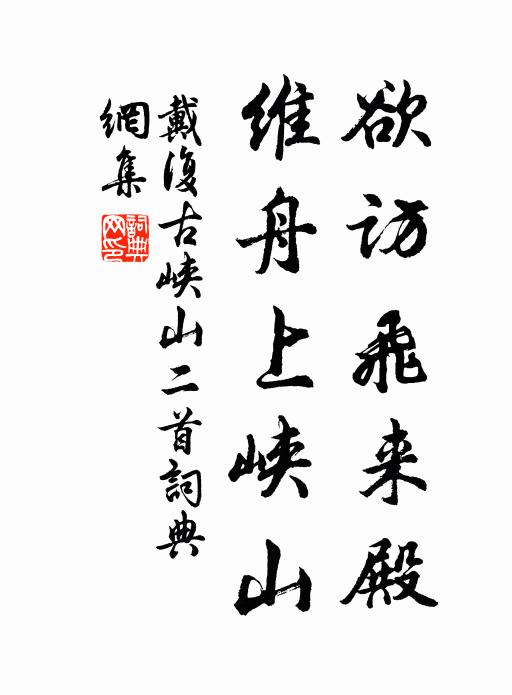 欲访飛来殿
維舟上峡山
戴復古峡山二首詞典
網集
詞典
网印